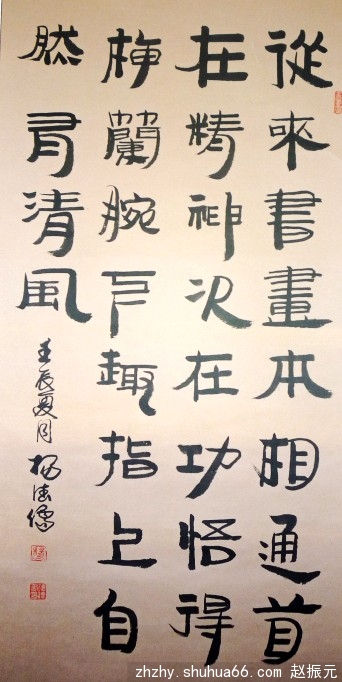 從來書畫本相通首
在精神次在功悟得
梅蘭腕下趣指上自
然有清風
壬辰夏月 杨德儒
zhzhy.shuhua66.com 赵振元